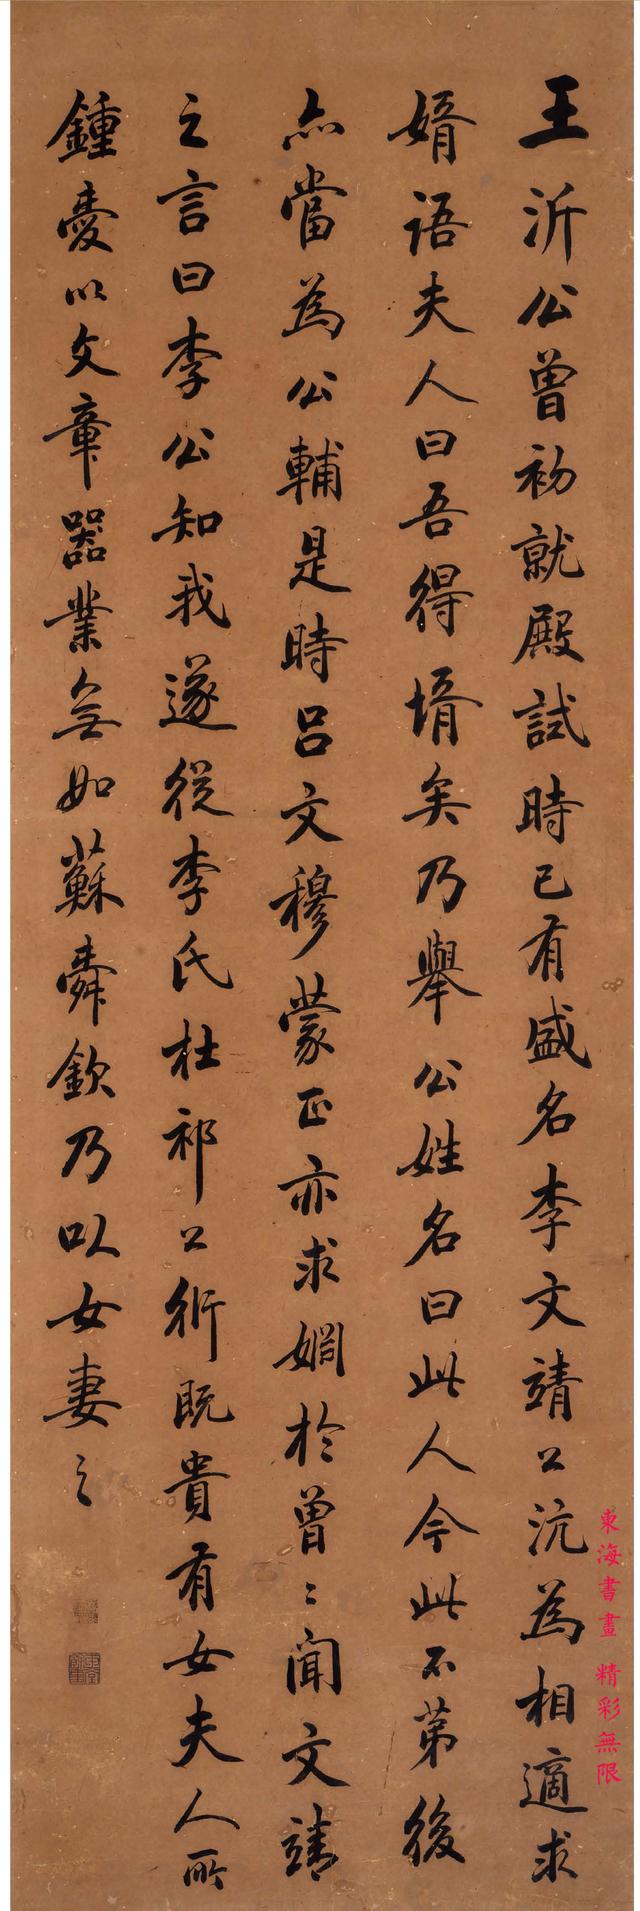 王沂公曾初就殿試時已有盛名李文靖公沆為相適求
婿語夫人曰吾得壻矣乃舉公姓名曰此人今此不第後
亦當為公輔是時呂文穆蒙正亦求婣於曾〻聞文靖
之言曰李公知我遂從李氏杜祁公衍既貴有女夫人所
鍾愛以文章器業無如蘇舜欽乃以女妻之
東海書畫 精彩無限